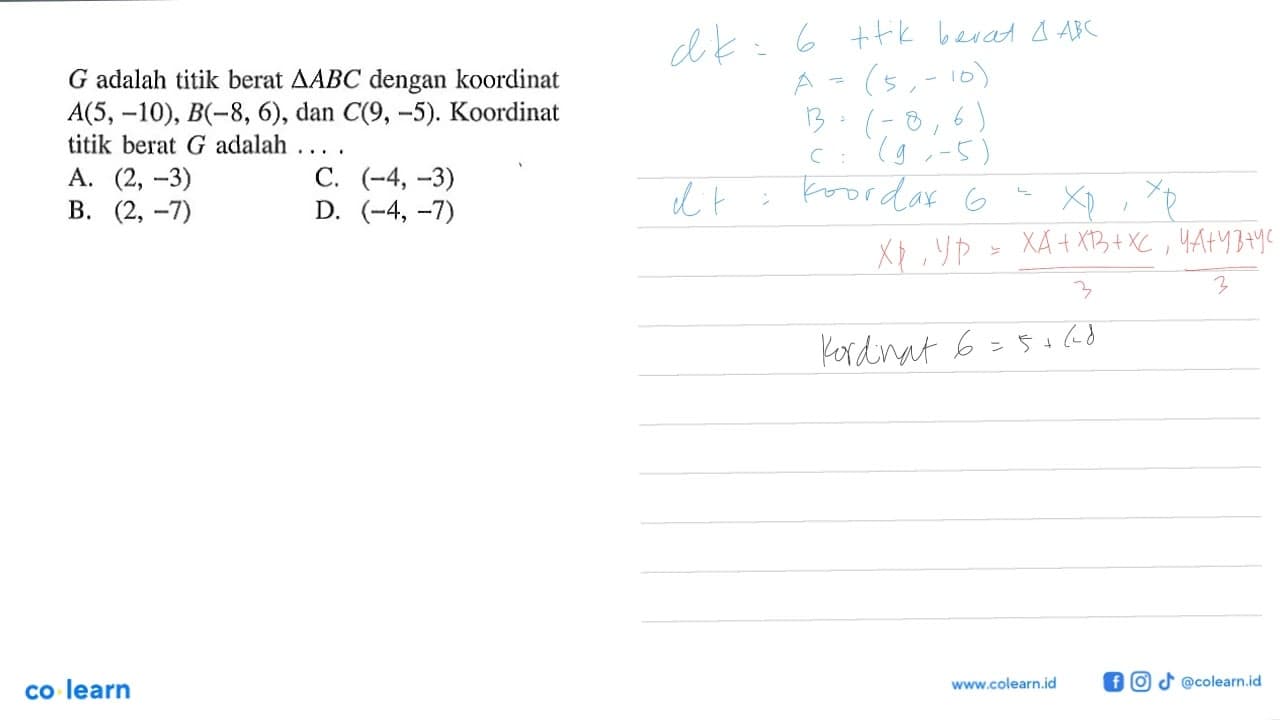 G adalah titik berat ΔABC dengan koordinat
A(5, –10), B(–8, 6), dan C(9, –5). Koordinat
titik berat G adalah . . . .
A. (2, –3) C. (–4, –3)
B. (2, –7) D. (–4, –7)
dk = G ttk berat Δ ABC
A = (5, -10)
B = (-8, 6)
C : (9, -5)
dt : koordat G = xp, xp
xp, yp = xA + xB + xC / 3, yA + yB + yC / 3
Kordinat G = 5 + (-8
co learn
www.colearn.id @colearn.id